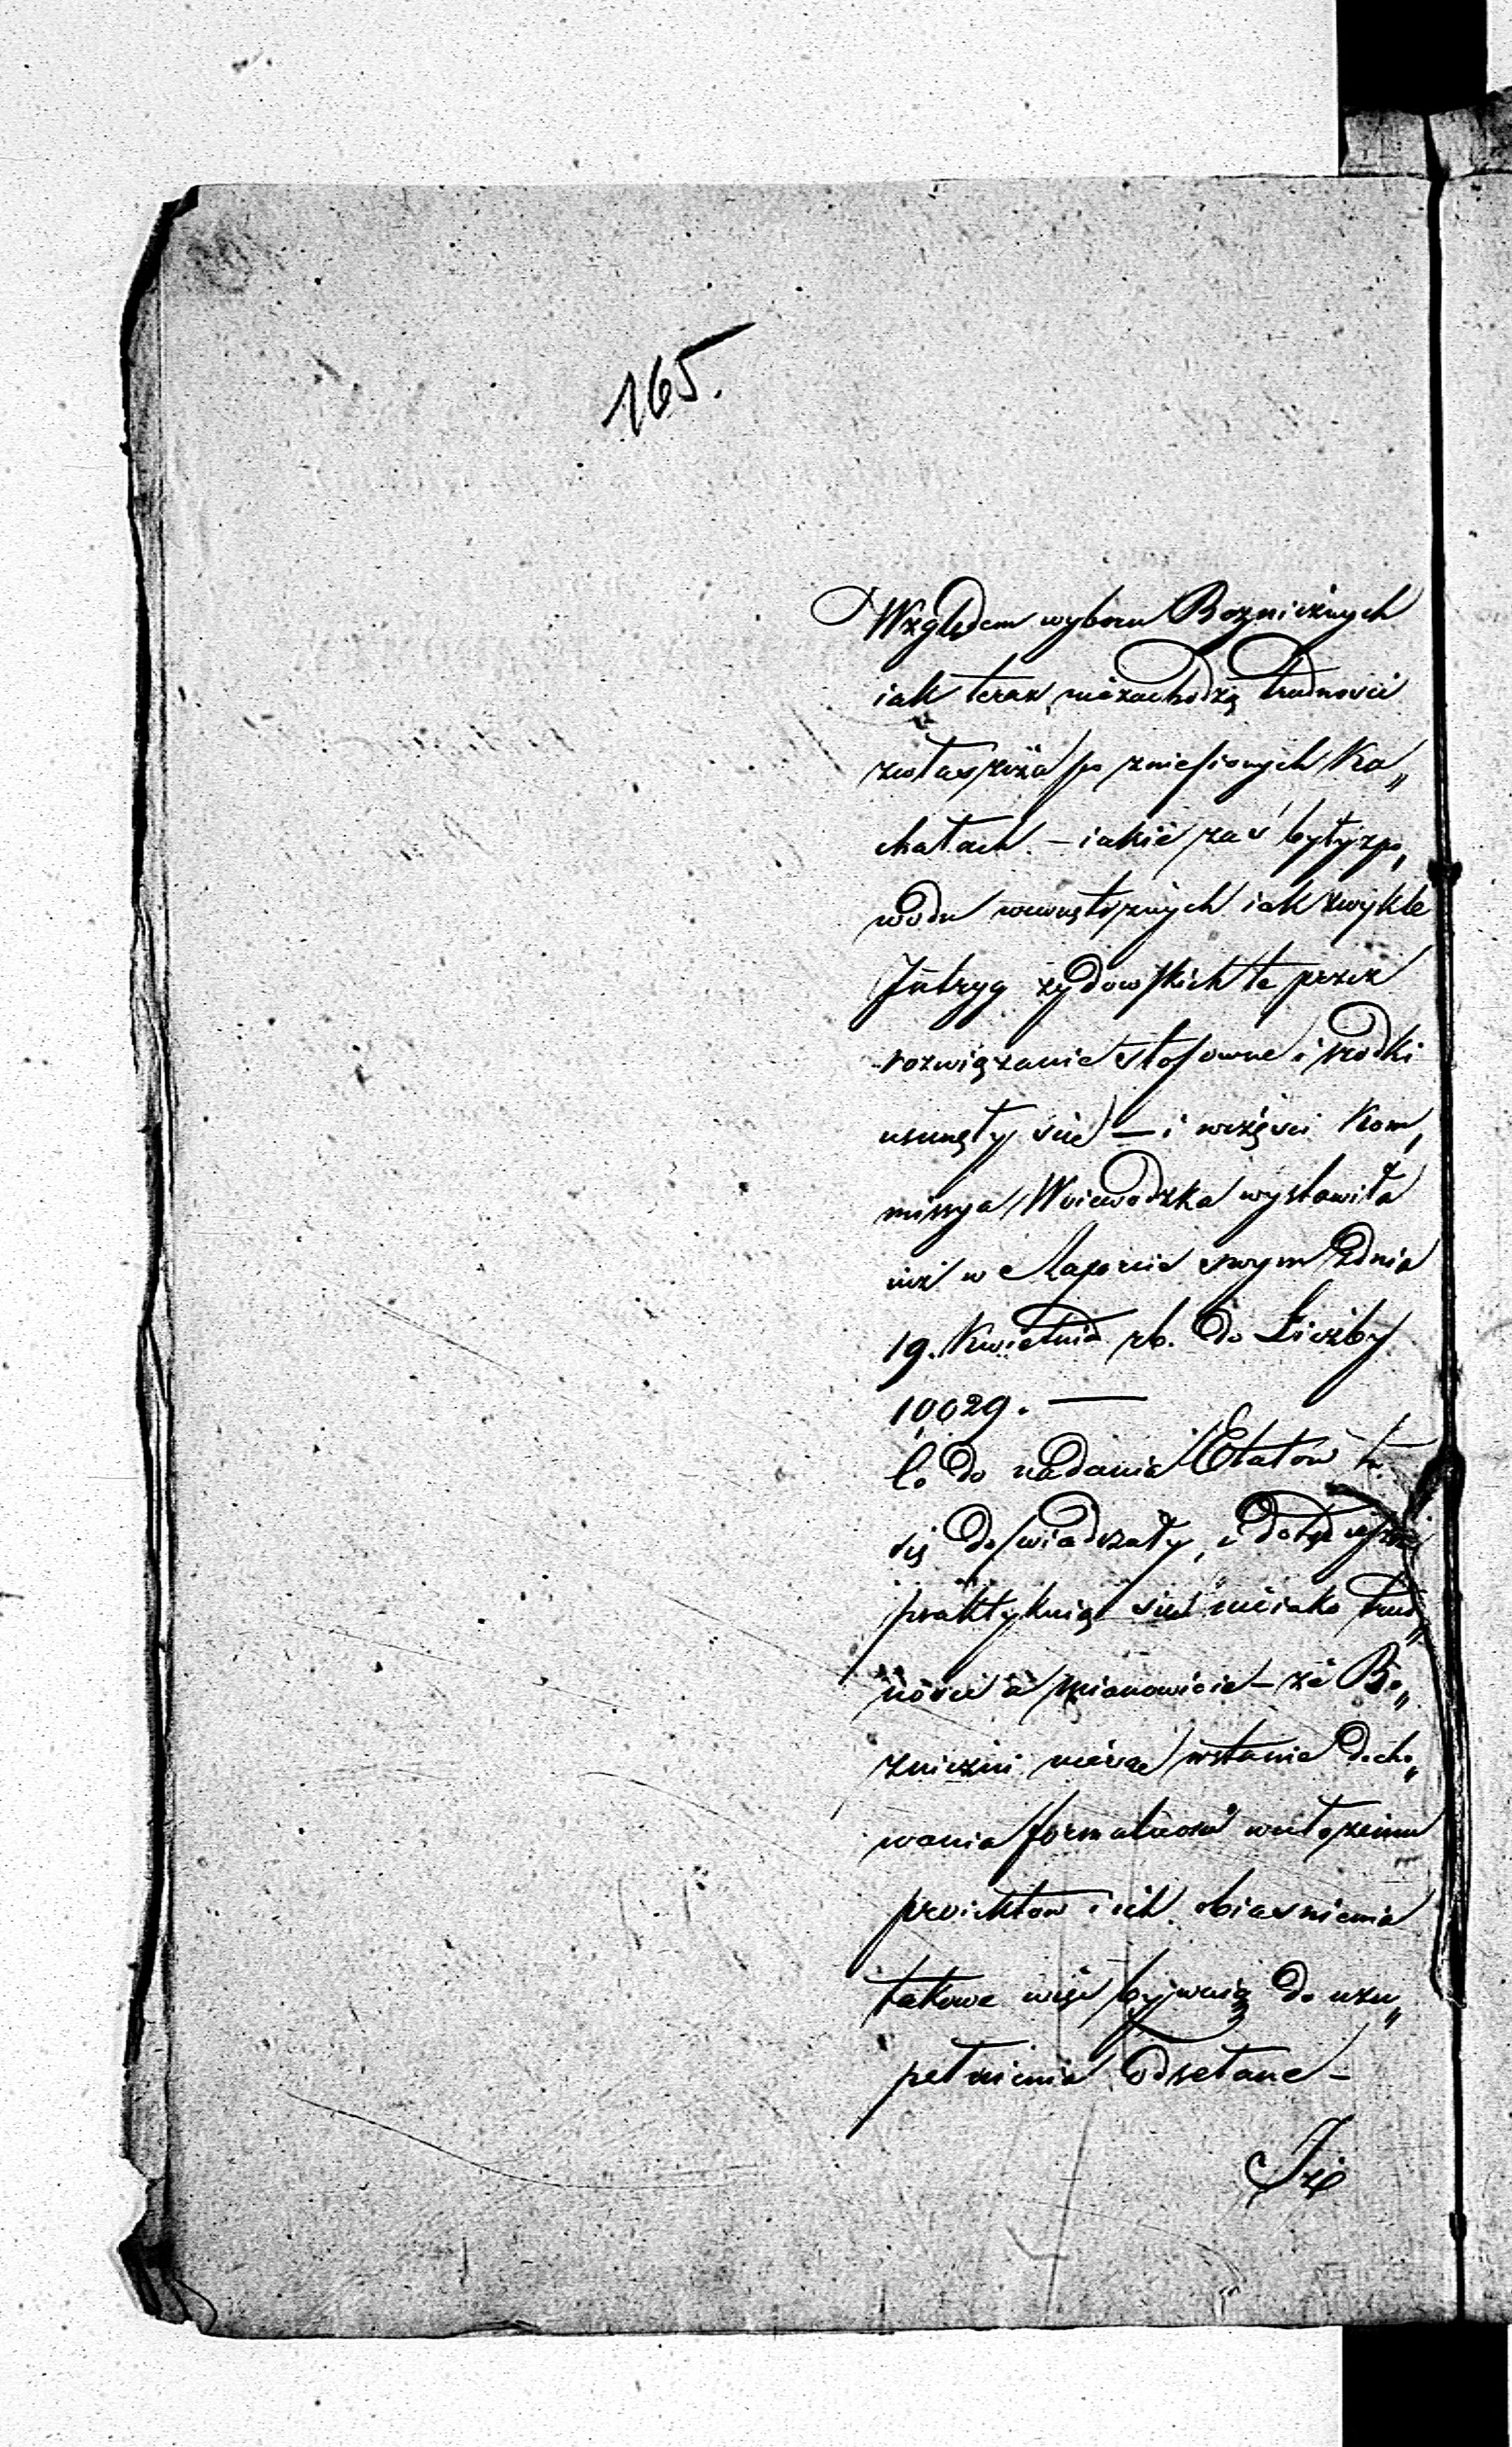 165.
Względem wyboru Boznicznych
iak teraz niezachodzą trudności
zwłaszcza po zniesionych Ka„
hałach. – iakie zaś były z po„
wodu wewnętrznych iak zwykle
Intryg żydowskich te przez
rozwiązanie stosowne i srodki
usunęły się – i
missya Woiewodzka wystawiła
iuż w Raporcie swym z dnia
19. Kwietnia rb. do Liczby
10029. —
Co do nadania Etatów
się doswiadczały, i dotąd
praktykuią się nieiako trud„
ności a mianowicie – że Bo„
zniczni nie są wstanie docho„
wania formalności
proiektów i ich obiasnienia
takowe więc bywaią do uzu„
pełnienia odsełane –